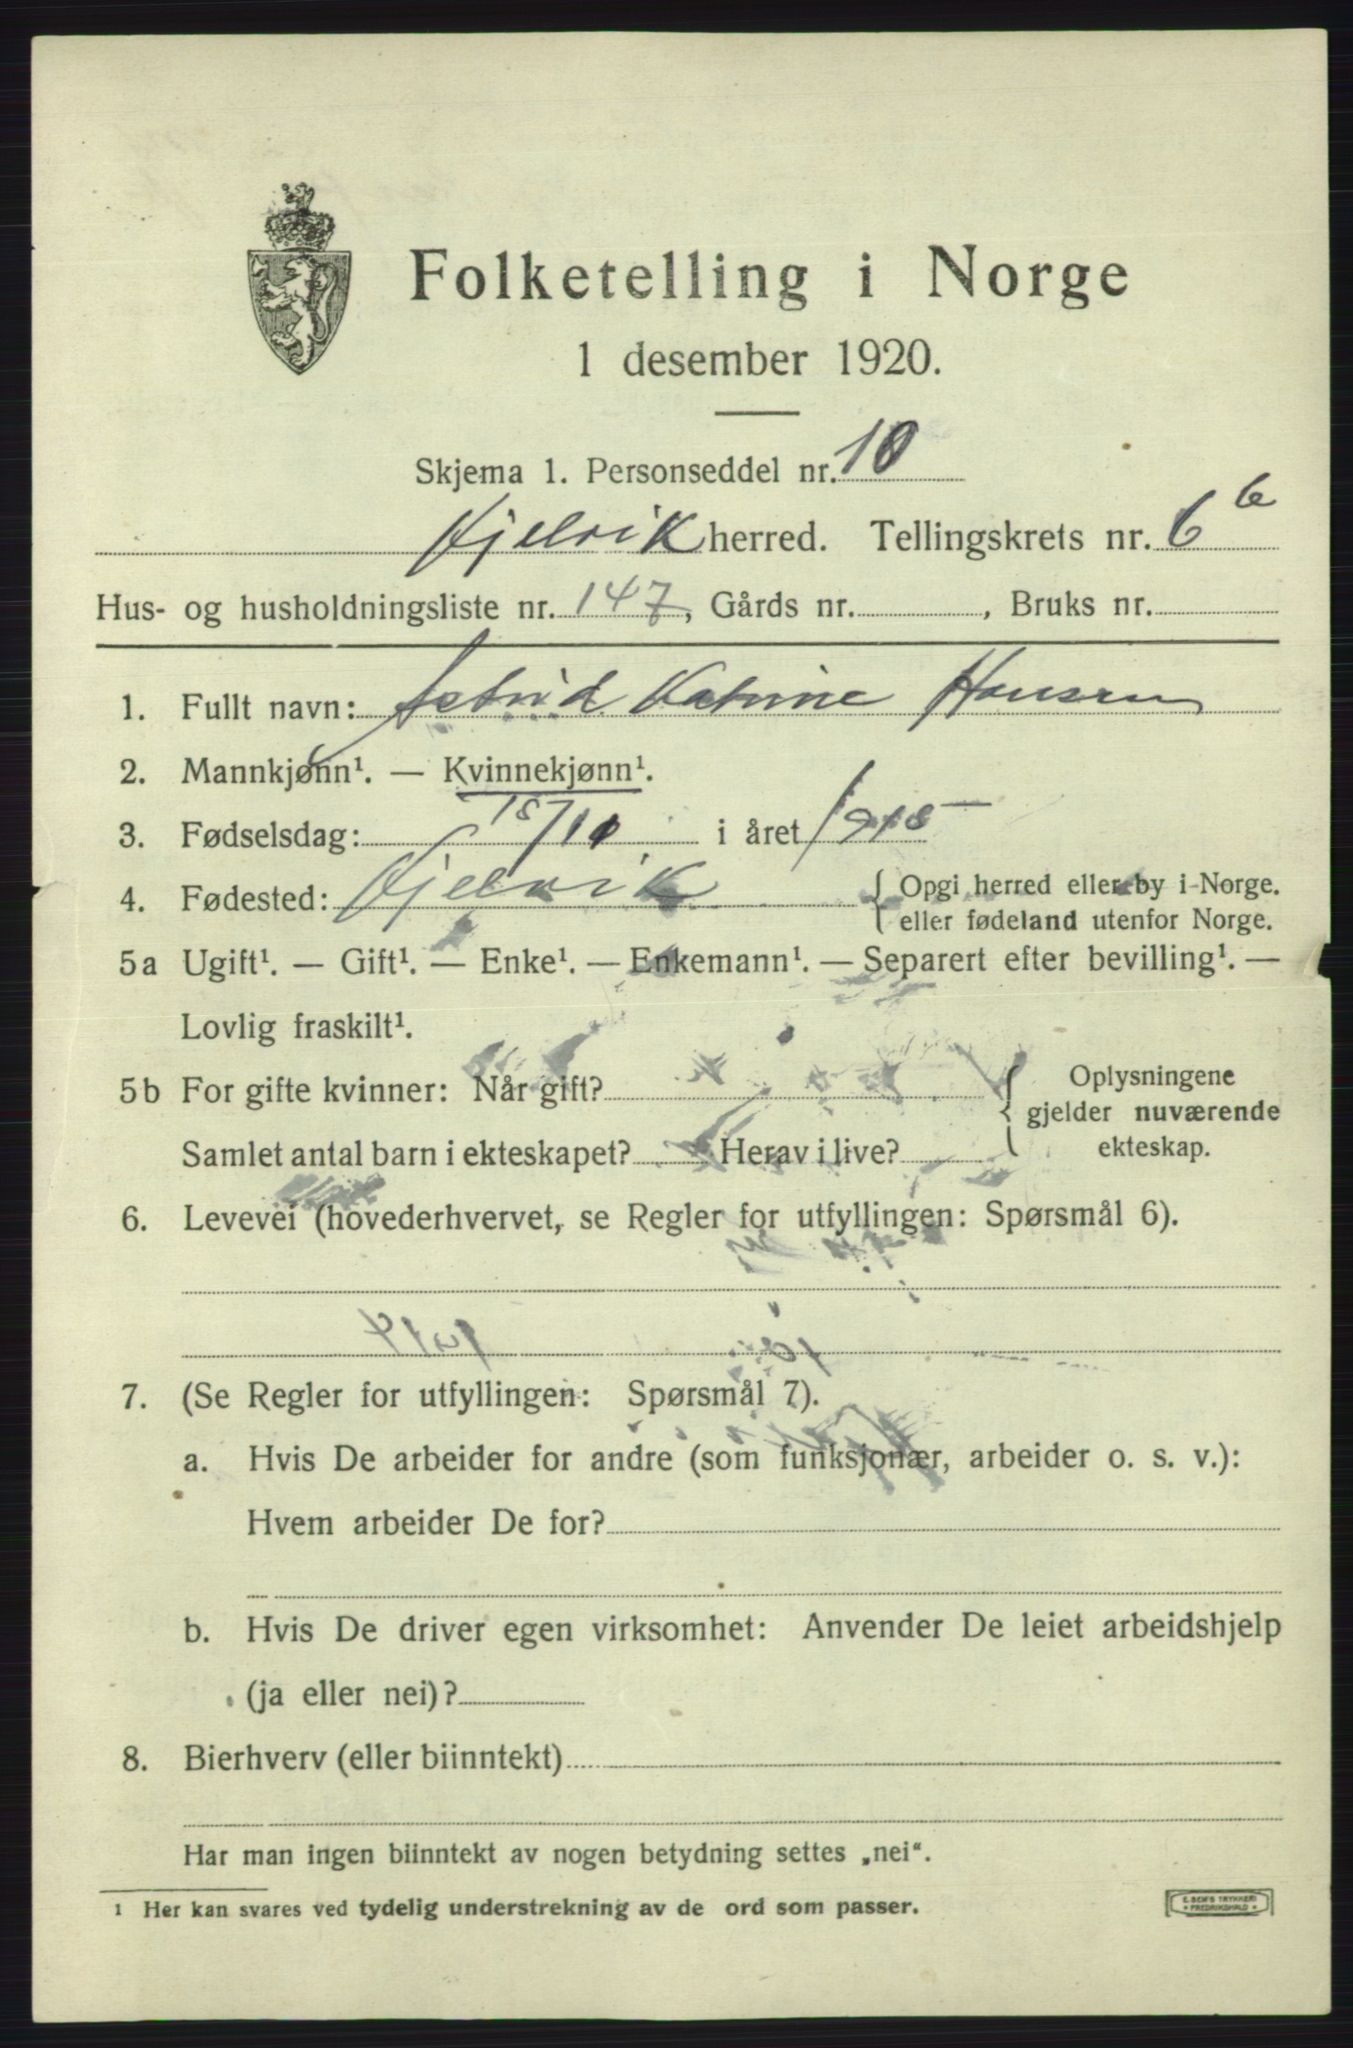 Folketelling i Norge
1 desember 1920.
Skjema 1. Personseddel nr. 10
Gjelvik herred. Tellingskrets nr. 6 b
Hus- og husholdningsliste nr. 147, Gårds nr. , Bruks nr.
1. Fullt navn: Astrid Katrine Hansen
2. Mannkjønn¹. — Kvinnekjønn¹.
3. Fødselsdag: 18/11 i året 1918
4. Fødested: Gjelvik { Opgi herred eller by i Norge.
eller fødeland utenfor Norge.
5a Ugift¹. — Gift¹. — Enke¹. — Enkemann¹. — Separert efter bevilling¹. —
Lovlig fraskilt¹.
5b For gifte kvinner: Når gift? { Oplysningene
gjelder nuværende
Samlet antal barn i ekteskapet? Herav i live? ekteskap.
6. Levevei (hovederhvervet, se Regler for utfyllingen: Spørsmål 6).
7. (Se Regler for utfyllingen: Spørsmål 7).
a. Hvis De arbeider for andre (som funksjonær, arbeider o. s. v.):
Hvem arbeider De for?
b. Hvis De driver egen virksomhet: Anvender De leiet arbeidshjelp
(ja eller nei)?
8. Bierhverv (eller biinntekt)
Har man ingen biinntekt av nogen betydning settes „nei“.
¹ Her kan svares ved tydelig understrekning av de ord som passer.
E. SEM'S TRYKKERI
FREDRIKSHALD